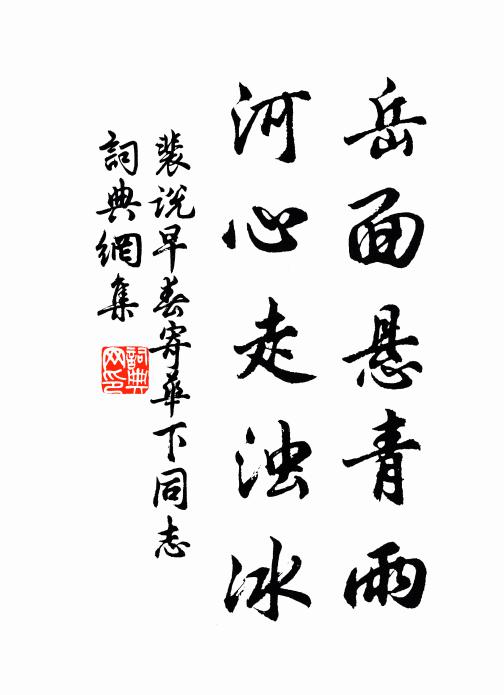 岳面悬青雨
河心走浊冰
裴说早春寄華下同志
詞典網集
詞典网印